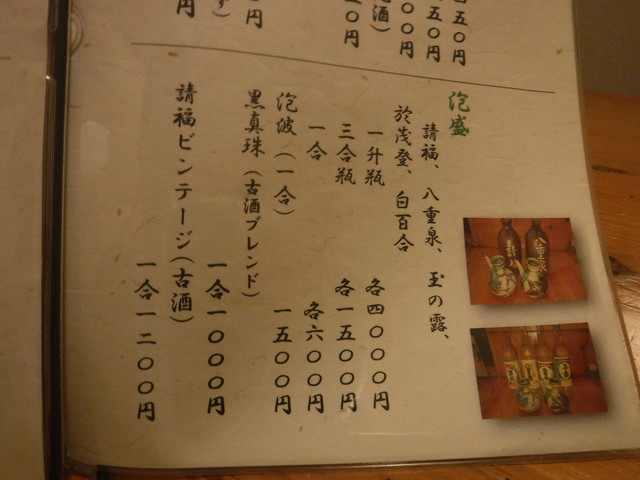 五〇円
五〇円
〇〇円
酒)
〇円
円
円
泡盛
請福、八重泉、玉の露、
於茂登、白百合
一升瓶 各四〇〇〇円
三合瓶 各一五〇〇円
一合 各六〇〇円
泡波(一合) 一五〇〇円
黒真珠(古酒ブレンド)
一合一〇〇〇円
請福ビンテージ(古酒)
一合一二〇〇円